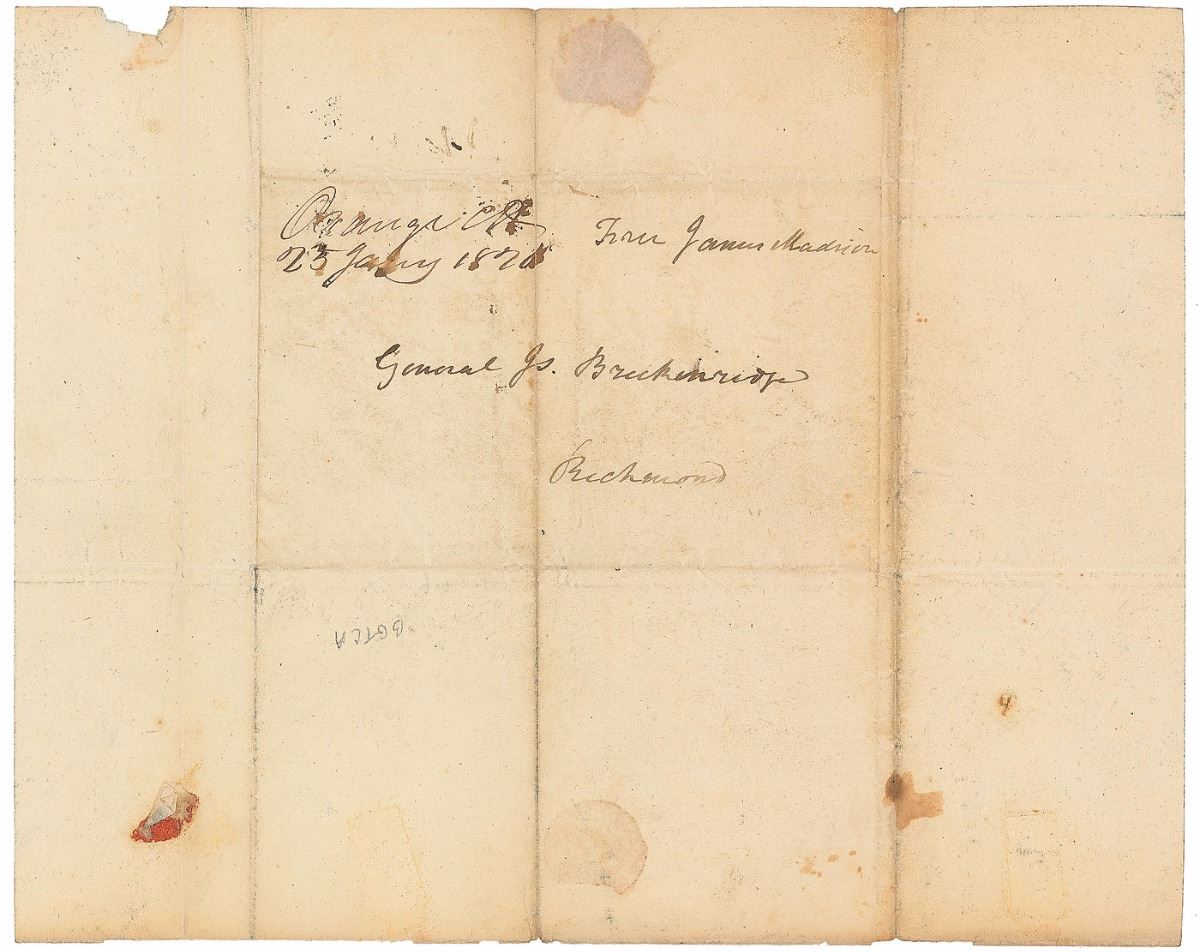 Orange CH
23 Jany 1821
Free James Madison
General Js. Breckenridge
Richmond